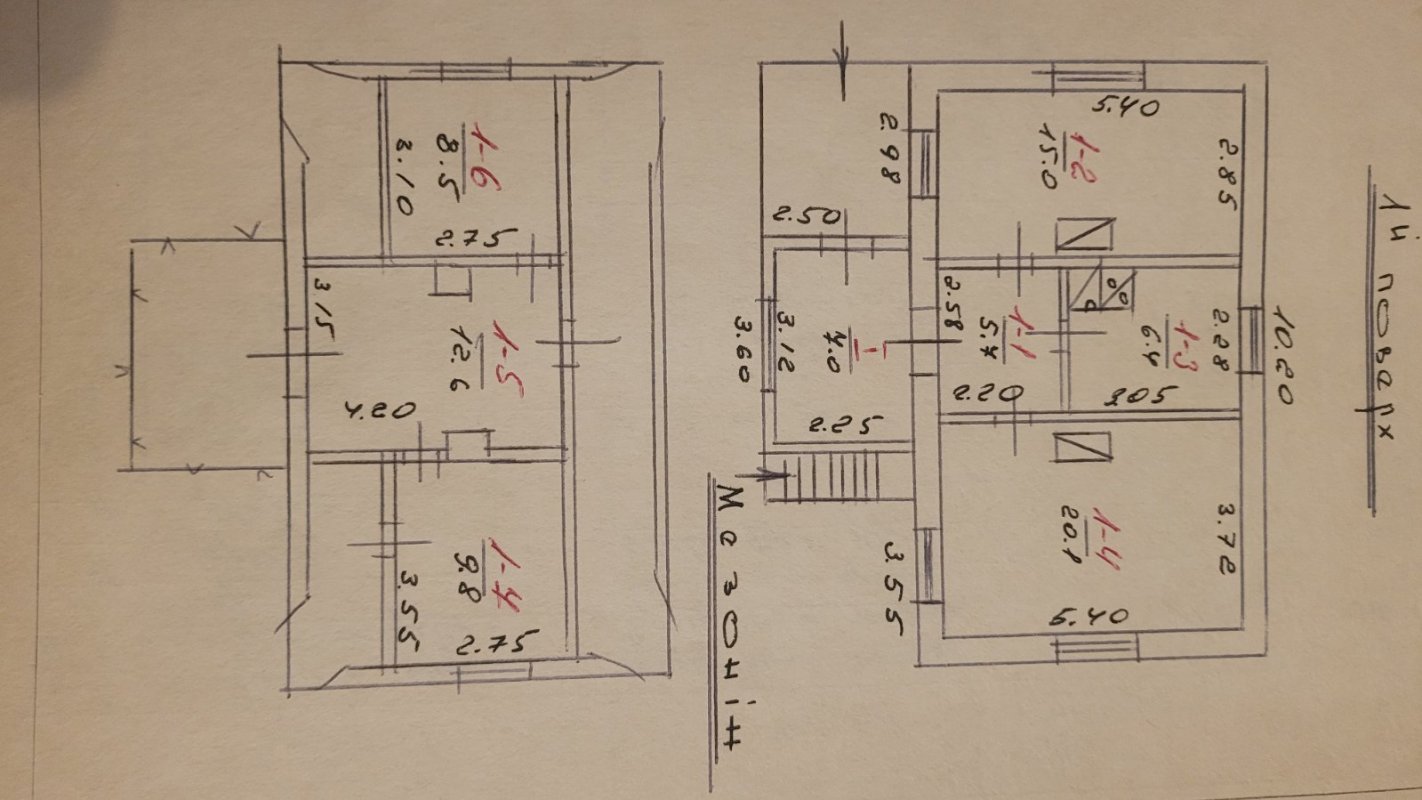 1й поверх
10.20
5.40
1-2
15.0
2.85
2.98
2.50
I
7.0
3.12
3.60
2.25
2.58
1-1
5.7
2.20
1-3
6.4
2.28
1-4
20.1
3.72
5.40
3.55
Мезонін
1-6
8.5
3.10
2.75
3.15
1-5
12.6
4.20
1-7
9.8
3.55
2.75